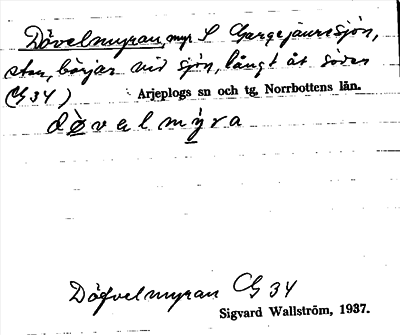 Dövelmyran, myr S Gargejauresjön,
stor, börjar vid sjön, långt åt söder
(G 34)
Arjeplogs sn och tg, Norrbottens län.
dø̀valmỳ̱ra
Döfvelmyran G 34
Sigvard Wallström, 1937.